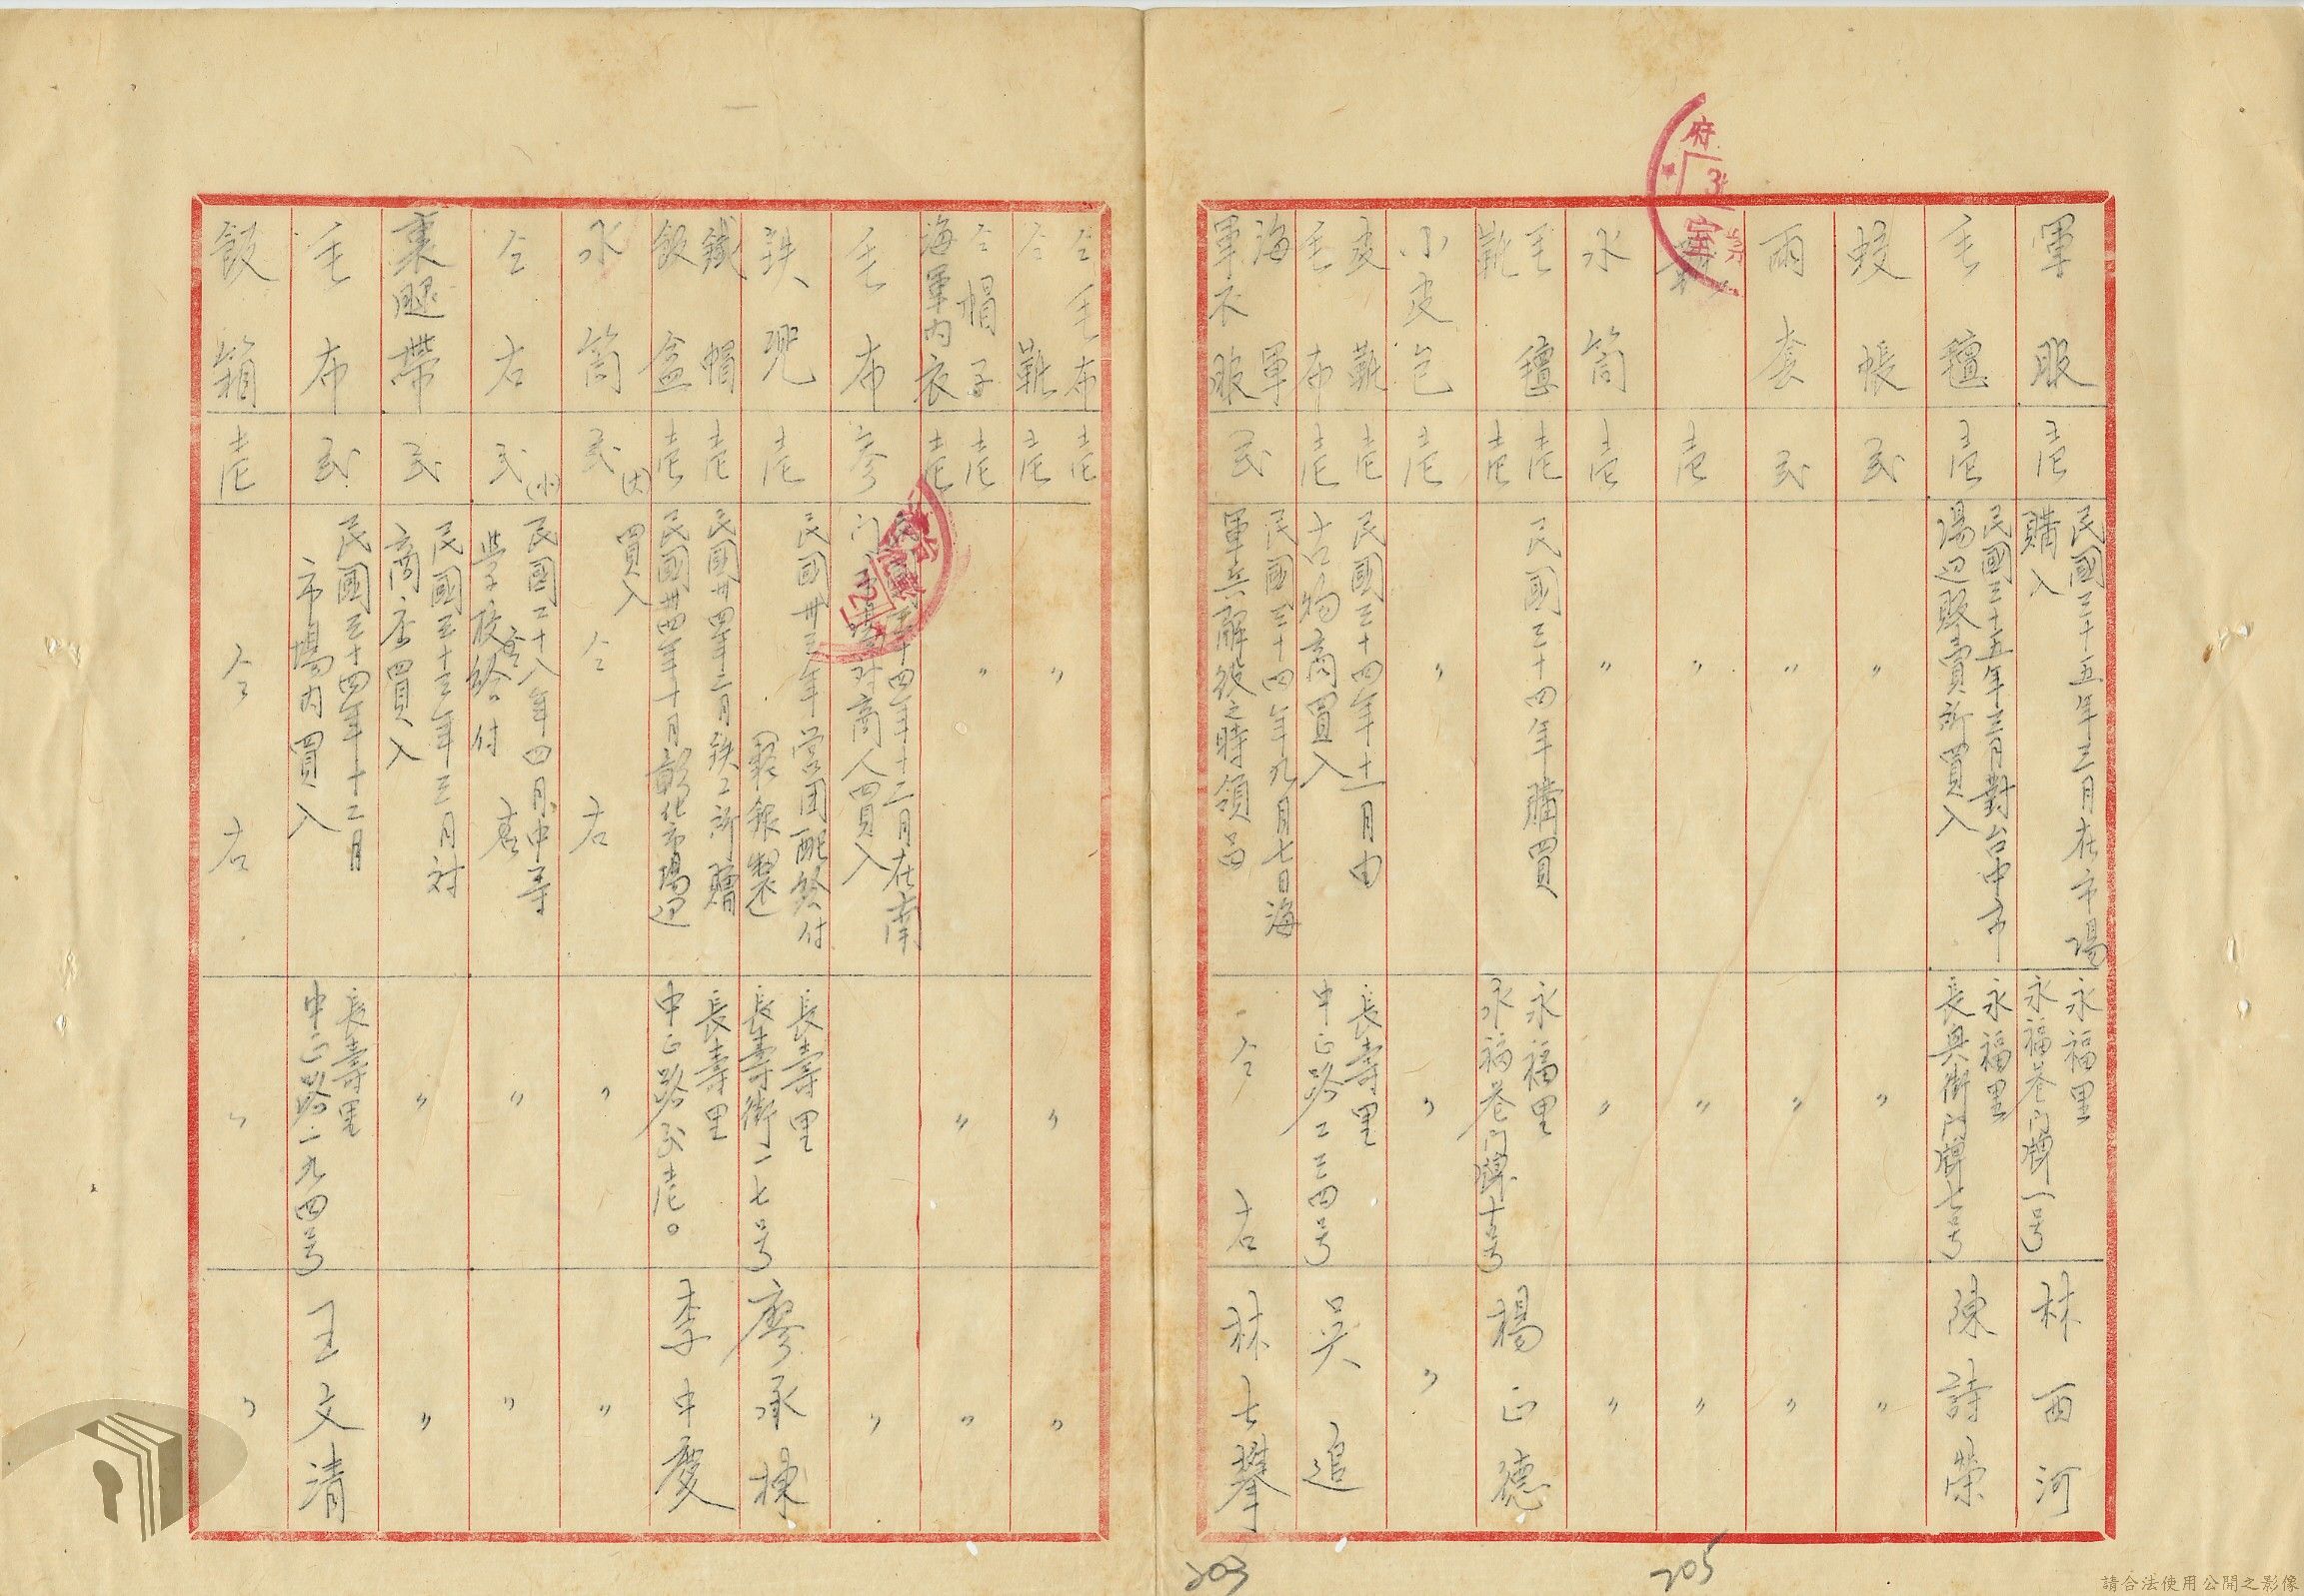 軍服 壱 民國三十五年三月在市場購入 永福里永福巷门牌一号 林西河
毛氈 壱 民國三十五年三月對台中市場迈販賣所買入 永福里長興街门牌七号 陳詩榮
蚊帳 弍 〃 〃 〃
雨套 弍 〃 〃 〃
壱 〃 〃 〃
水筒 壱 〃 〃 〃
毛氈 壱
靴 壱 民國三十四年購買 永福里永福巷门牌十号 楊正德
小皮包 壱 〃 〃 〃
皮靴 壱 民國三十四年十一月由
毛布 壱 古物商買入 長壽里中正路二三四号 吳追
海軍
軍衣服 弍 民國三十四年九月七日海軍兵解役之時領品 仝右 林士攀
仝毛布 壱
仝靴 壱 〃 〃 〃
仝帽子 壱
海軍内衣 壱 〃 〃 〃
毛布 参 十四年十二月在南门 对商人買入 〃
鉄兜 壱 民國卅三年営団配給付 長壽里長壽街一七号 廖承棟
鐵帽 壱 民國卅四年二月鉄工所贈
飯盒 壱 民國卅四年十月彰化市場迈買入 長壽里中正路弍壱。 李中慶
水筒 弍(大) 仝右 〃 〃
仝右 弍(小) 民國二十八年四月中等學校給付 〃 〃
裹腿帶 弍 民國三十三年三月対商店買入 〃 〃
毛布 弍 民國三十四年十二月市場内買入 長壽里中正路一九四号 王文清
飯箱 壱 仝右 〃 〃
203
205
請合法使用公開之影像